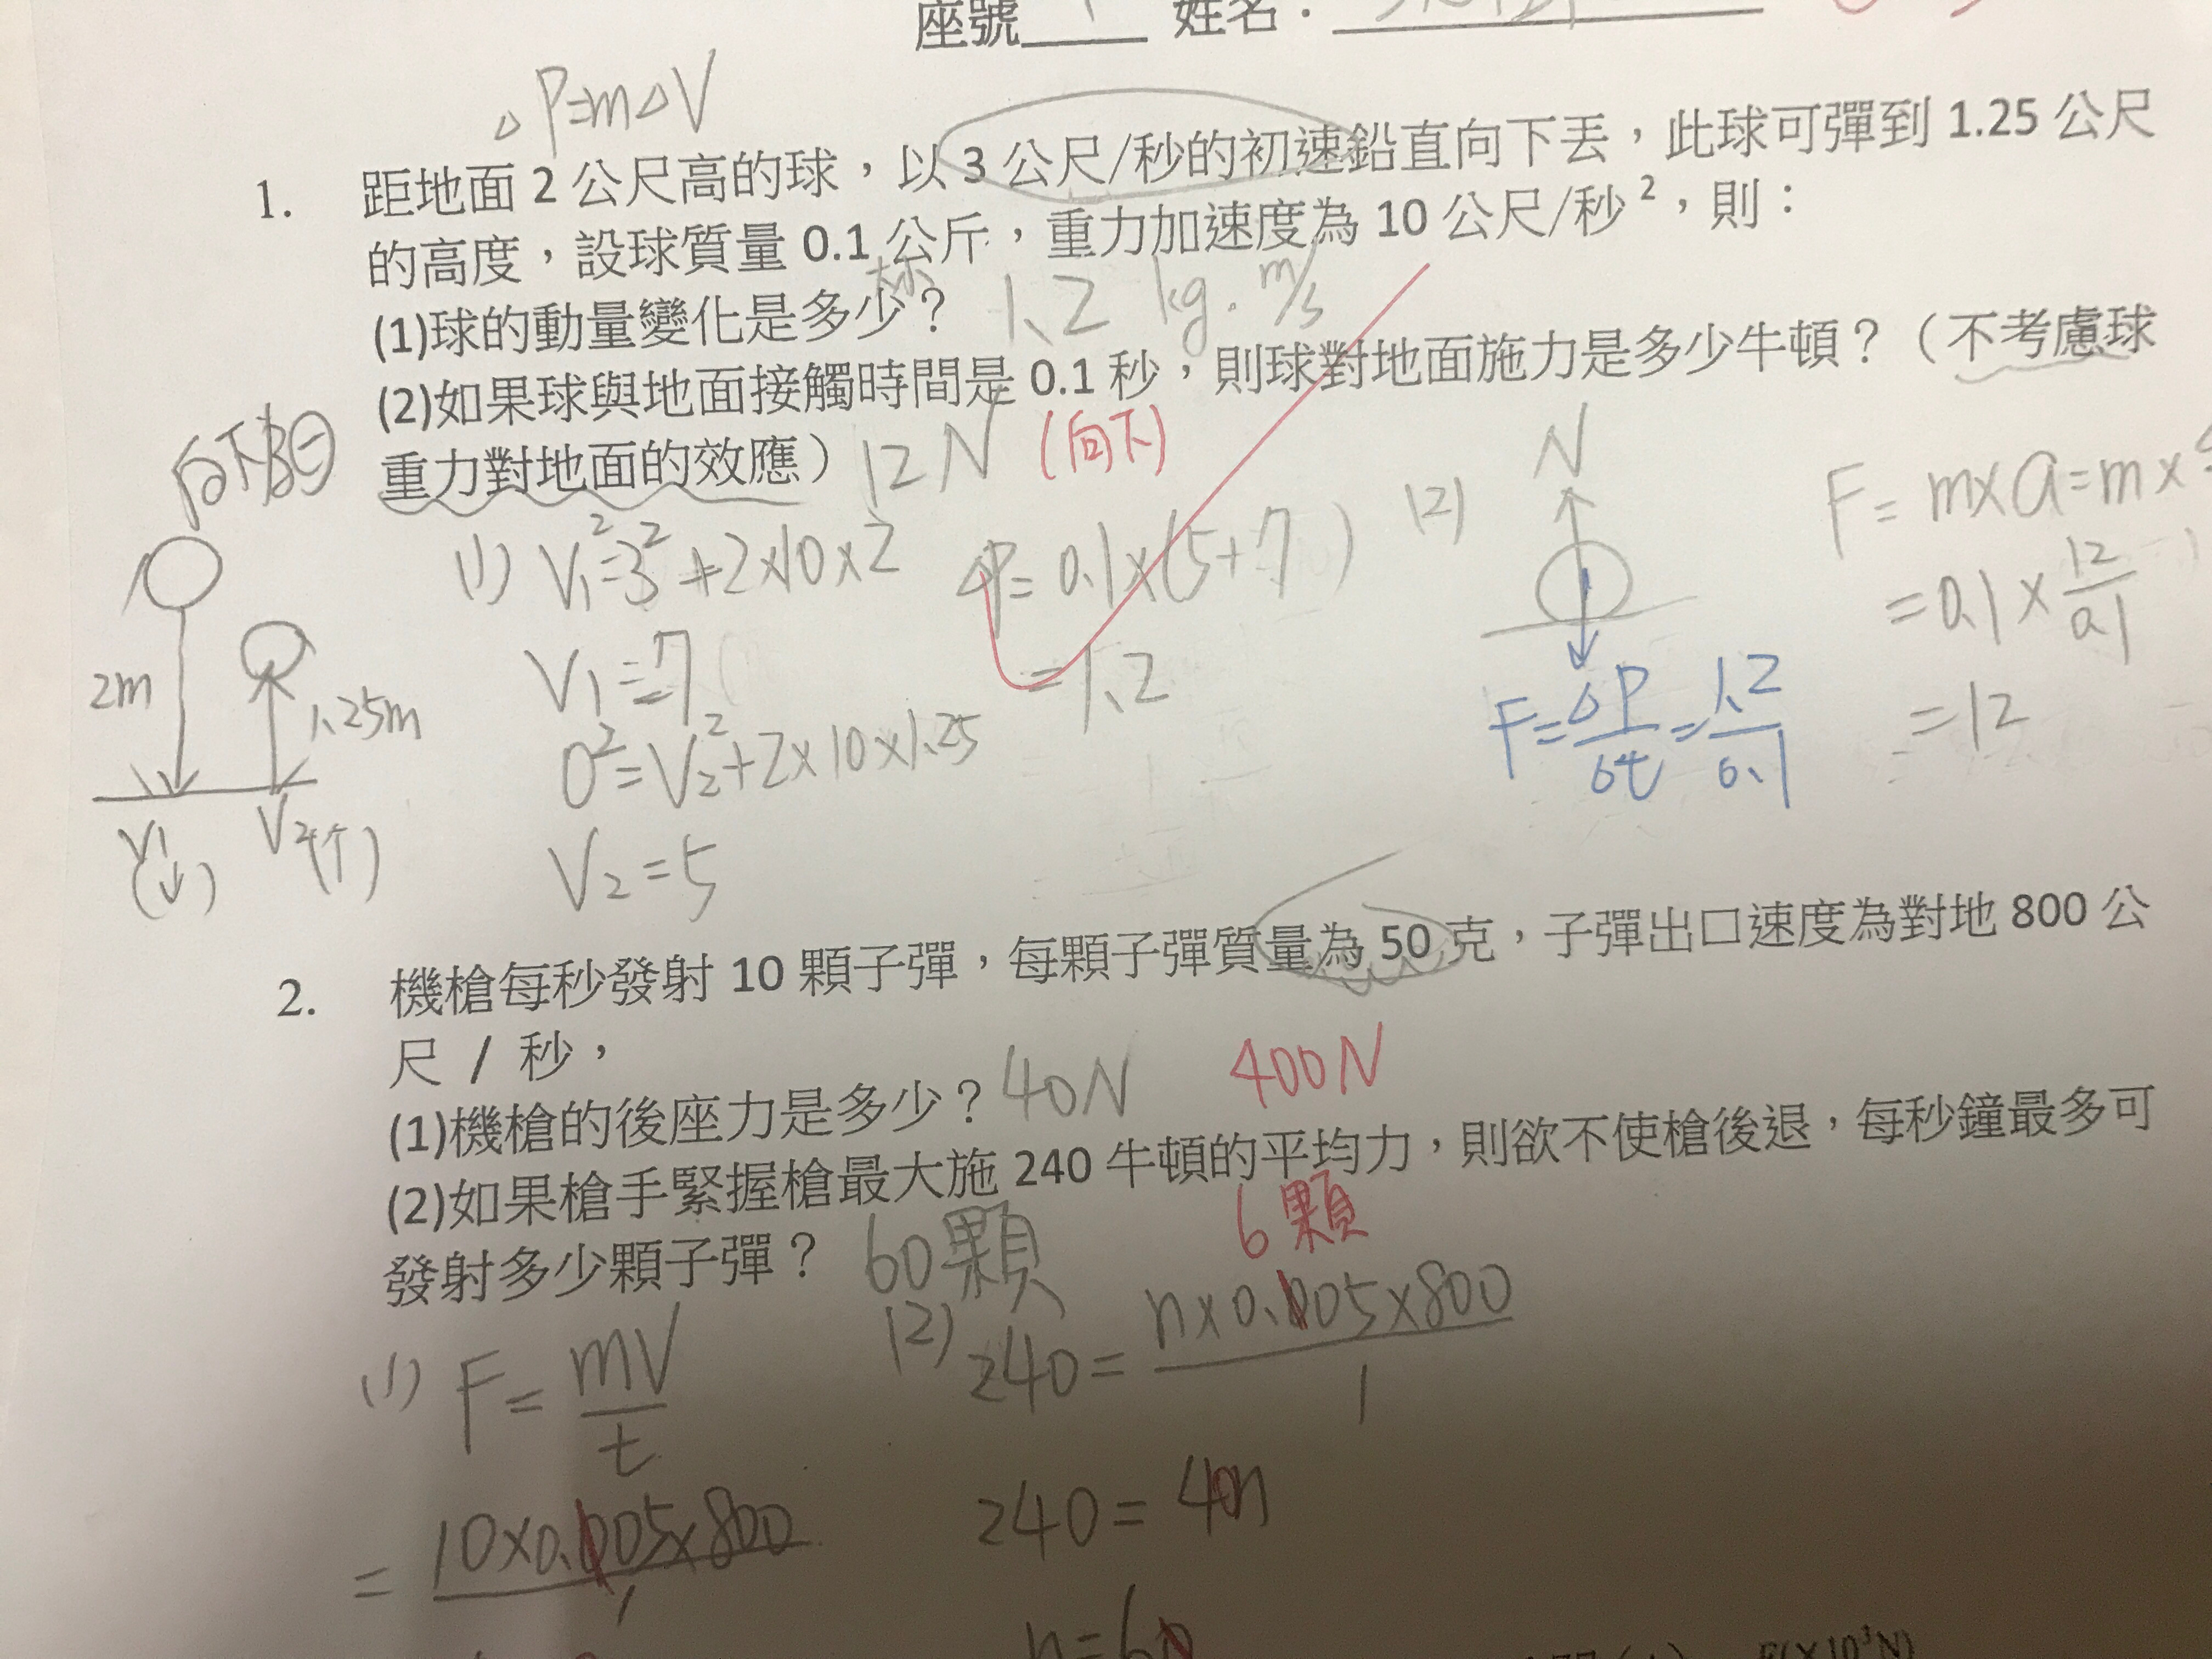 座號 姓名：
△P=m△V
1. 距地面 2 公尺高的球，以 3 公尺/秒的初速鉛直向下丟，此球可彈到 1.25 公尺
的高度，設球質量 0.1 公斤，重力加速度為 10 公尺/秒²，則：
(1)球的動量變化是多少？ 1.2 kg·m/s
(2)如果球與地面接觸時間是 0.1 秒，則球對地面施力是多少牛頓？（不考慮球
重力對地面的效應） 12N (向下)
向下為
2m
1.25m
V1(↓)
V2(↑)
(1) V1²=3²+2×10×2
V1=7
0²=V2²+2×10×1.25
V2=5
△P=0.1×(5+7)
=1.2
(2) N
F=△P/△t=1.2/0.1
F=m×a=m×
=0.1×12/0.1
=12
2. 機槍每秒發射 10 顆子彈，每顆子彈質量為 50 克，子彈出口速度為對地 800 公
尺 / 秒，
(1)機槍的後座力是多少？ 40N 400N
(2)如果槍手緊握槍最大施 240 牛頓的平均力，則欲不使槍後退，每秒鐘最多可
發射多少顆子彈？ 60顆 6顆
(1) F=mV/t
=10×0.005×800/1
(2) 240=n×0.005×800/1
240=40n
n=60
F(×10³N)